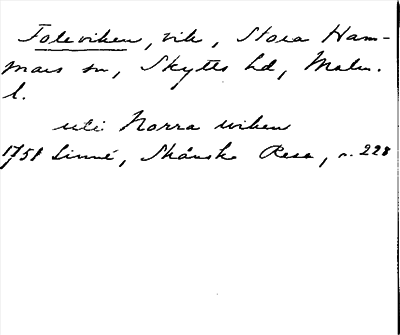 Foteviken, vik, Stora Ham-
mars sn, Skytts hd, Malm.
l.
uti Norra wiken
1751 Linné, Skånska Resa, s. 228